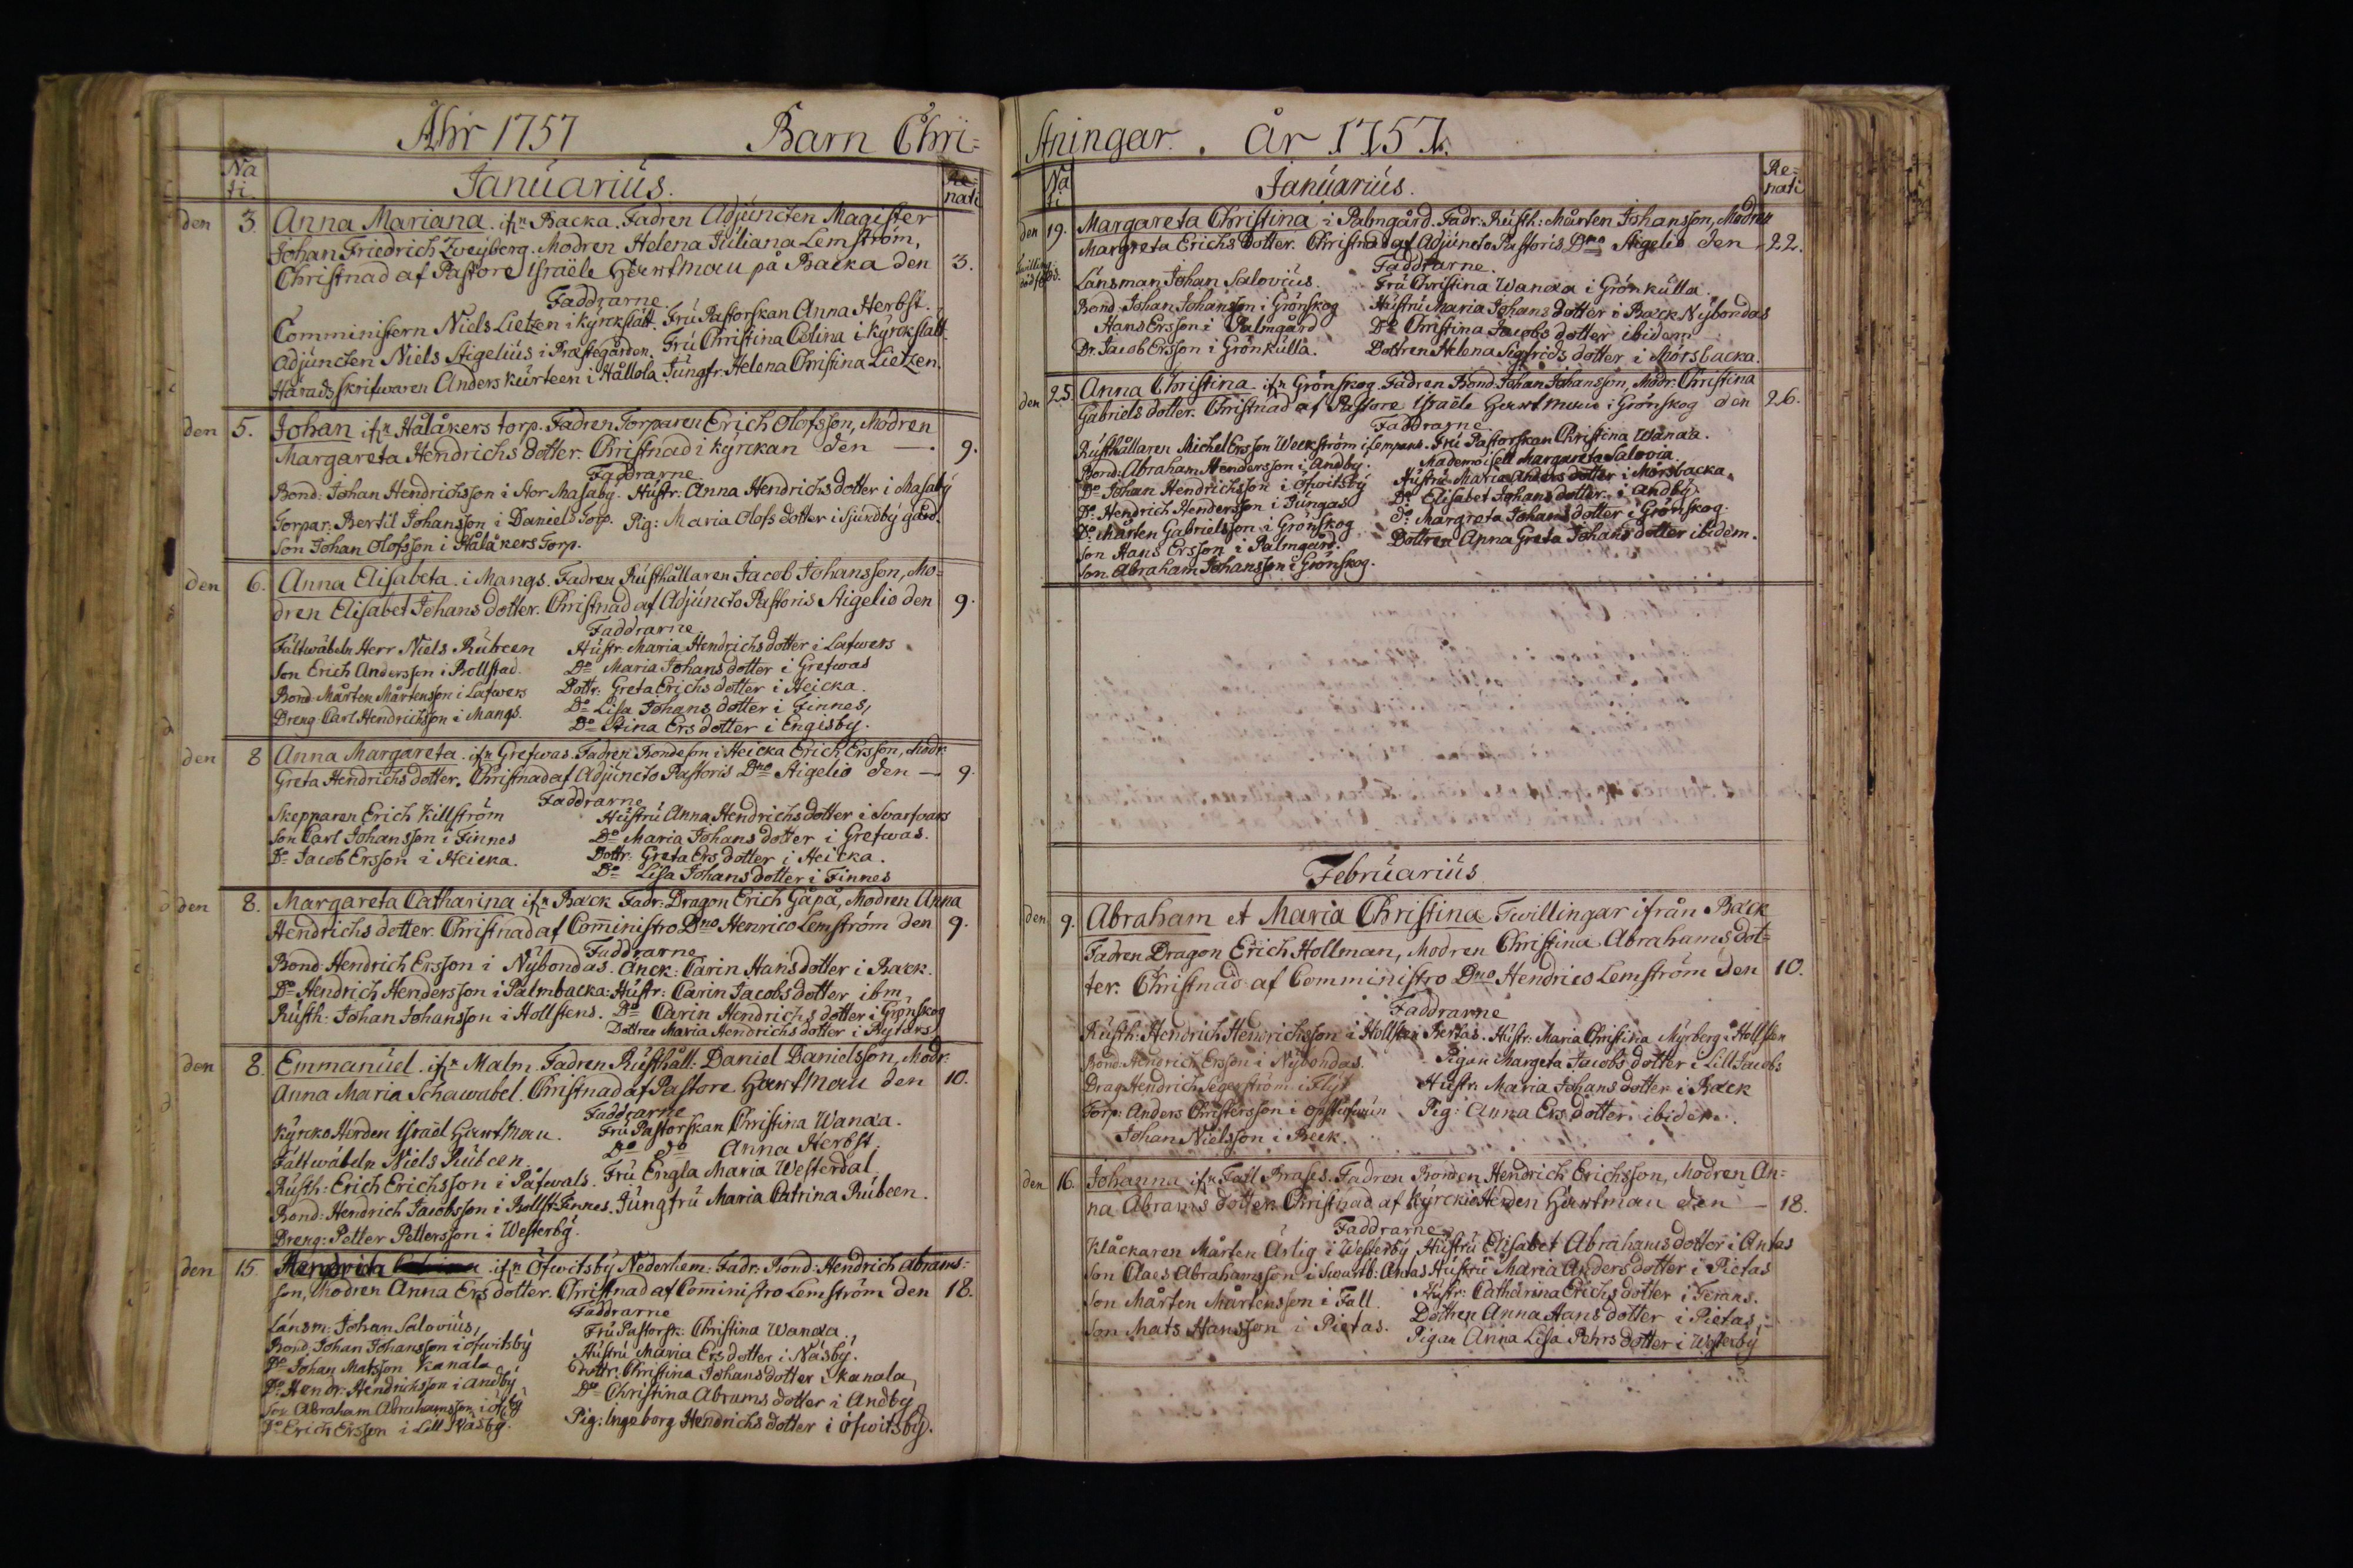 Åhr 1757 Barn Chri=
Na
ti.
Januarius.
Re=
nati
den 3. Anna Mariana. ifr. Backa. Fadren Adjuncten Magister
Johan Friedrich Zweyberg. Modren Helena Juliana Lemström,
Christnad af Pastore Israële Hartman på Backa den 3.
Faddrarne.
Comministern Niels Lietzen i Kyrckslätt. Fru Pastorskan Anna Herbst.
Adjuncten Niels Stigelius i Præstegården. Fru Christina Colina i Kyrckslätt.
Häradsskrifwaren Anders Kurteen i Hållola. Jungfr. Helena Christina Lietzen.
den 5. Johan ifr. Hålåkers torp. Fadren Torparen Erich Olofsson, Modren
Margareta Hendrichs dotter. Christnad i kyrckan den — 9.
Faddrarne
Bond: Johan Hendrichsson i Stor Masaby. Hustr: Anna Hendrichs dotter i Masaby
Torpar: Bertil Johansson i Daniels Torp. Pig: Maria Olofs dotter i Sjundby gård.
Son Johan Olofsson i Hålåkers Torp.
den 6. Anna Elisabeta. i Mangs. Fadren Rusthållaren Jacob Johansson, Mo=
dren Elisabet Johans dotter. Christnad af Adjuncto Pastoris Stigelio den 9.
Faddrarne
Fältwäbeln Herr Niels Rubeen Hustr: Maria Hendrichs dotter i Lafwers
Son Erich Andersson i Bollstad. Do Maria Johans dotter i Grefwas
Bond: Mårten Mårtensson i Lafwers Dottr: Greta Erichs dotter i Heicka.
Dreng Carl Hendrichsson i Mangs. Do Lisa Johans dotter i Finnes,
Do Stina Ers dotter i Engisby.
den 8 Anna Margareta. ifr. Grefwas. Fadren Bondeson i Heicka Erich Ersson, Modr:
Greta Hendrichs dotter. Christnad af Adjuncto Pastoris Dno Stigelio den — 9.
Faddrarne
Skepparen Erich Killström Hustru Anna Hendrichs dotter i Svartvars
Son Carl Johansson i Finnes Do Maria Johans dotter i Grefwas.
Do Jacob Ersson i Heicka. Dottr: Greta Ers dotter i Heicka.
Do Lisa Johans dotter i Finnes
den 8. Margareta Catharina ifr. Back Fadr: Dragon Erich Gåpå, Modren Anna
Hendrichs dotter. Christnad af Coministro Dno Henrico Lemström den 9.
Faddrarne
Bond: Hendrich Ersson i Nybondas. Anck: Carin Hans dotter i Back.
Do Hendrich Hendersson i Palmbacka: Hustr: Carin Jacobs dotter ibm
Rusth: Johan Johansson i Hollstens. Do Carin Hendrichs dotter i Grönskog
Dottren Maria Hendrichs dotter i Rytars
den 8. Emmanuel. ifr. Malm. Fadren Rusthåll: Daniel Danielsson, Modr:
Anna Maria Schawabel. Christnad af Pastore Hartman den 10.
Faddrarne
Kyrcko Herden Israel Hartman. Fru Pastorskan Christina Wanæa.
Fältwäbeln Niels Rubeen. Do do Anna Herbst.
Rusth: Erich Erichsson i Påfwals. Fru Engla Maria Westerdal.
Bond: Hendrich Jacobsson i Bollst: Finnes. Jungfru Maria Catrina Rubeen.
Dreng: Petter Pettersson i Westerby.
den 15. Hendrich ifr. Öfwitsby Nederhem: Fadr: Bond: Hendrich Abrams=
son, Modren Anna Ers dotter. Christnad af Coministro Lemström den 18.
Faddrarne
Länsm: Johan Salovius, Fru Pastorsk: Christina Wanæa.
Bond: Johan Johansson i öfwitsby Hustru Maria Ers dotter i Näsby.
Do Johan Matsson Kanala Dottr: Christina Johans dotter i Kanala,
Do Hendr: Hendrichsson i Andby Do Christina Abrams dotter i Andby
Son Abraham Abrahamsson i
Do Erich Ersson i Lill Näsby. Pig: Ingeborg Hendrichs dotter i öfwitsby.
stningar. år 1757.
Na
ti
Januarius.
Re=
nati
den 19. Margareta Christina i Palmgård. Fadr: Rusth: Mårten Johansson, Modren
Margreta Erichs Dotter. Christnad af Adjuncto Pastoris Dno Stigelio den 22.
Faddrarne.
Länsman Johan Salovius. Fru Christina Wanæa i Grönkulla.
Bond: Johan Johansson i Grönskog Hustru Maria Johans dotter i Back Nybondas
Hans Ersson i Palmgård Do Christina Jacobs dotter ibidem
Dr. Jacob Ersson i Grönkulla. Dottren Helena Sigfrids dotter i Mörsbacka.
den 25. Anna Christina ifr Grönskog. Fadren Bond: Johan Johansson, Modr: Christina
Gabriels dotter. Christnad af Pastore Israële Hartman i Grönskog den 26.
Faddrarne
Rusthållaren Michel Ersson Weckström i Lempans. Fru Pastorskan Christina Wanæa.
Bond: Abraham Hendersson i Andby. Mademoisell Margareta Salovia.
Do Johan Hendrichsson i öfwitsby Hustru Maria Anders dotter i Mörsbacka.
Do. Hendrich Hendersson i Jungas Do. Elisabet Johans dotter i andby.
Do Mårten Gabrielsson i Grönskog do. Margreta Johans dotter i Grönskog.
Son Hans Ersson i Palmgård. Dottren Anna Greta Johans dotter ibidem.
Son Abraham Johansson i Grönskog.
Februarius
den 9. Abraham et Maria Christina Twillingar ifrån Back
Fadren Dragon Erich Hollman, Modren Christina Abrahams dot=
ter. Christnad af Comministro Dno Hendrico Lemström den 10.
Faddrarne
Rusth: Hendrich Hendrichsson i Hollsten Bertas. Hustr: Maria Christina Myrberg i Hollsten
Bond: Hendrich Ersson i Nybondas. Pigan Margeta Jacobs dotter i Lill Jacobs
Drag Hendrich Segerström i Flyt Hustr: Maria Johans dotter i Back
Torp: Anders Christersson i Pig: Anna Ers dotter ibidem.
Johan Nielsson i Beck.
den 16. Johanna ifr. Fall Brases. Fadren Bonden Hendrich Erichsson, Modren An=
na Abrams dotter. Christnad af Kyrckio Herden Hartman den — 18.
Faddrarne
Klåckaren Mårten Ärlig i Westerby Hustru Elisabet Abrahams dotter i Antas
Son Claes Abrahamsson i Swartb: Antas Hustru Maria Anders dotter i Pietas
Son Mårten Mårtensson i Fall. Hustr: Catharina Erichs dotter i Ferans.
Son Mats Hansson i Pietas. Dottren Anna Hans dotter i Pietas;
Pigan Anna Lisa Pehrs dotter i Westerby